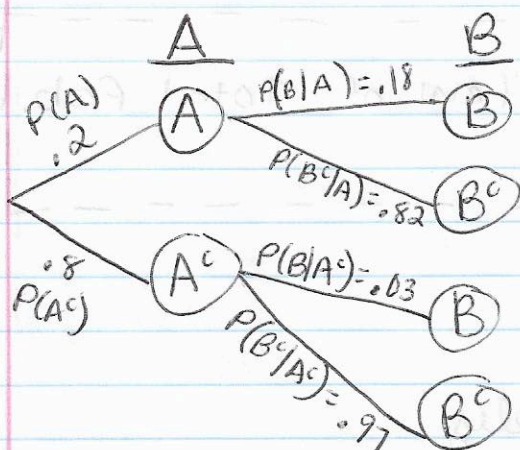 A B
P(A) .2
A
P(B|A)=.18
B
P(Bᶜ|A)=.82
Bᶜ
.8 P(Aᶜ)
Aᶜ
P(B|Aᶜ)=.03
B
P(Bᶜ|Aᶜ)=.97
Bᶜ